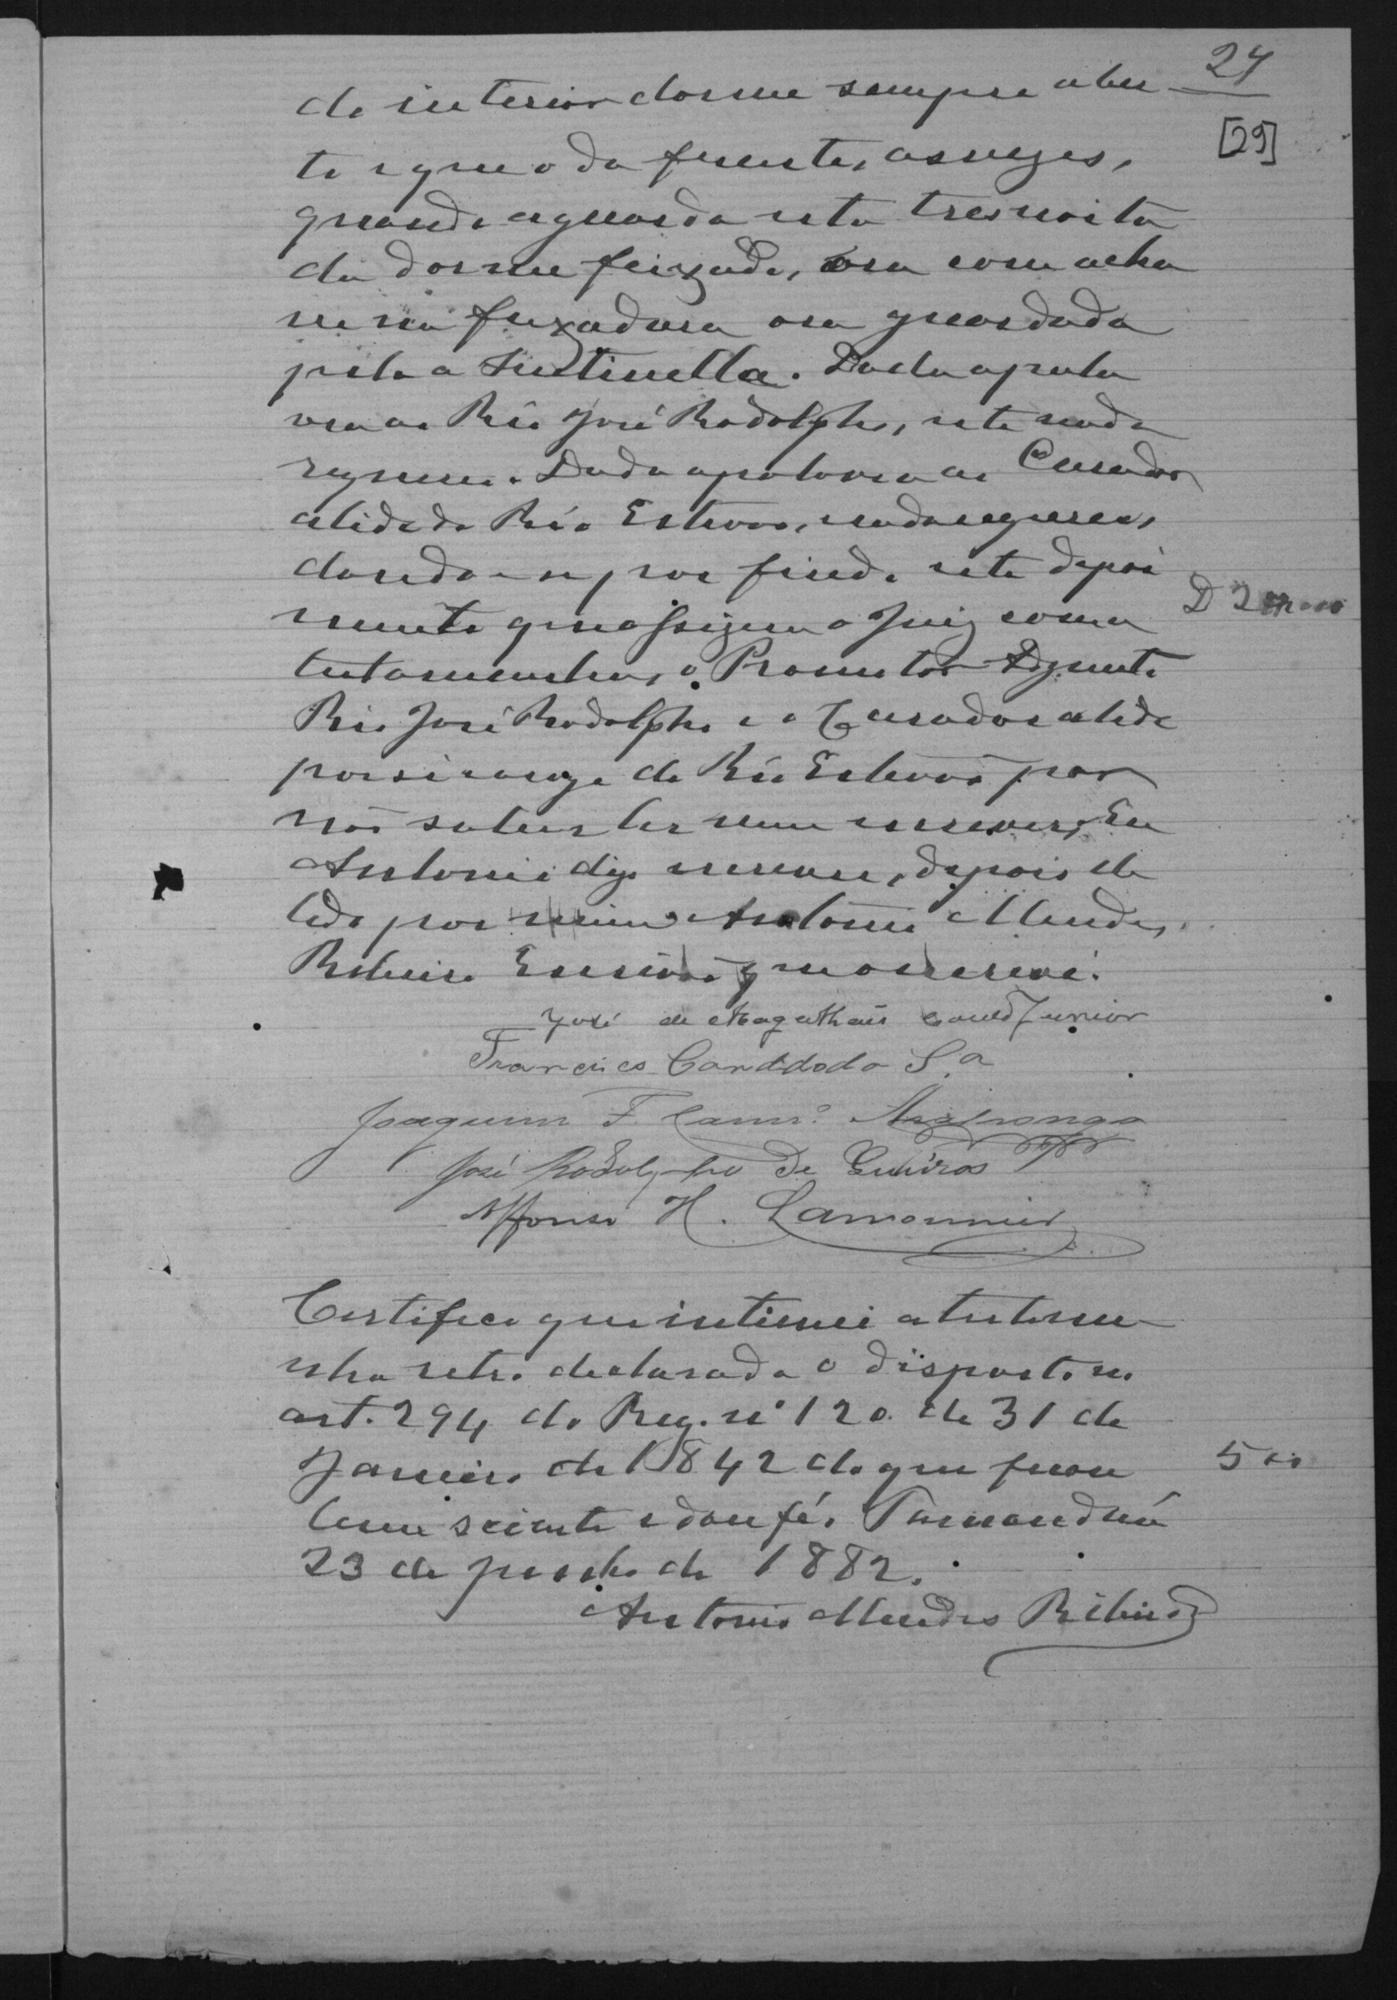 24
[29]
do interior dorme sempre aber
to e que o da frente, as vezes,
quando a guarda esta tresnoita
da dorme feixado, ora com a cha
ve na feixadura ora guardada
pela a Sentinella. Dada a pala
vra ao Réo José Rodolpho, este nada
requereu. Dada a palavra ao Curador
alide do Réo Estevão, nada requereu,
dando-se por findo este depoi
mento que assignam o Juiz com a
testemunha, o Promotor
Réo José Rodolpho e o Curador alide
por si e rogo do Réo Estevão por
não saber ler nem escrever, Eu
Antonio digo escrever, depois de
lido por mim Antonio Mendes
Ribeiro Escrivão que o escrevi.
José de Magalhães Junior
Francisco Candido da S.a
Joaquim F.
José Rodolpho de Queiros
Affonso H. Lamounier
D 2
Certifico que intimei a testemu
nha retro declarada o disposto no
art. 294 do Reg. nº 120 de 31 de
Janeiro de 1842 do que ficou
bem sciente e dou fé. Tamanduá
23 de Junho de 1882.
Antonio Mendes Ribeiro
500